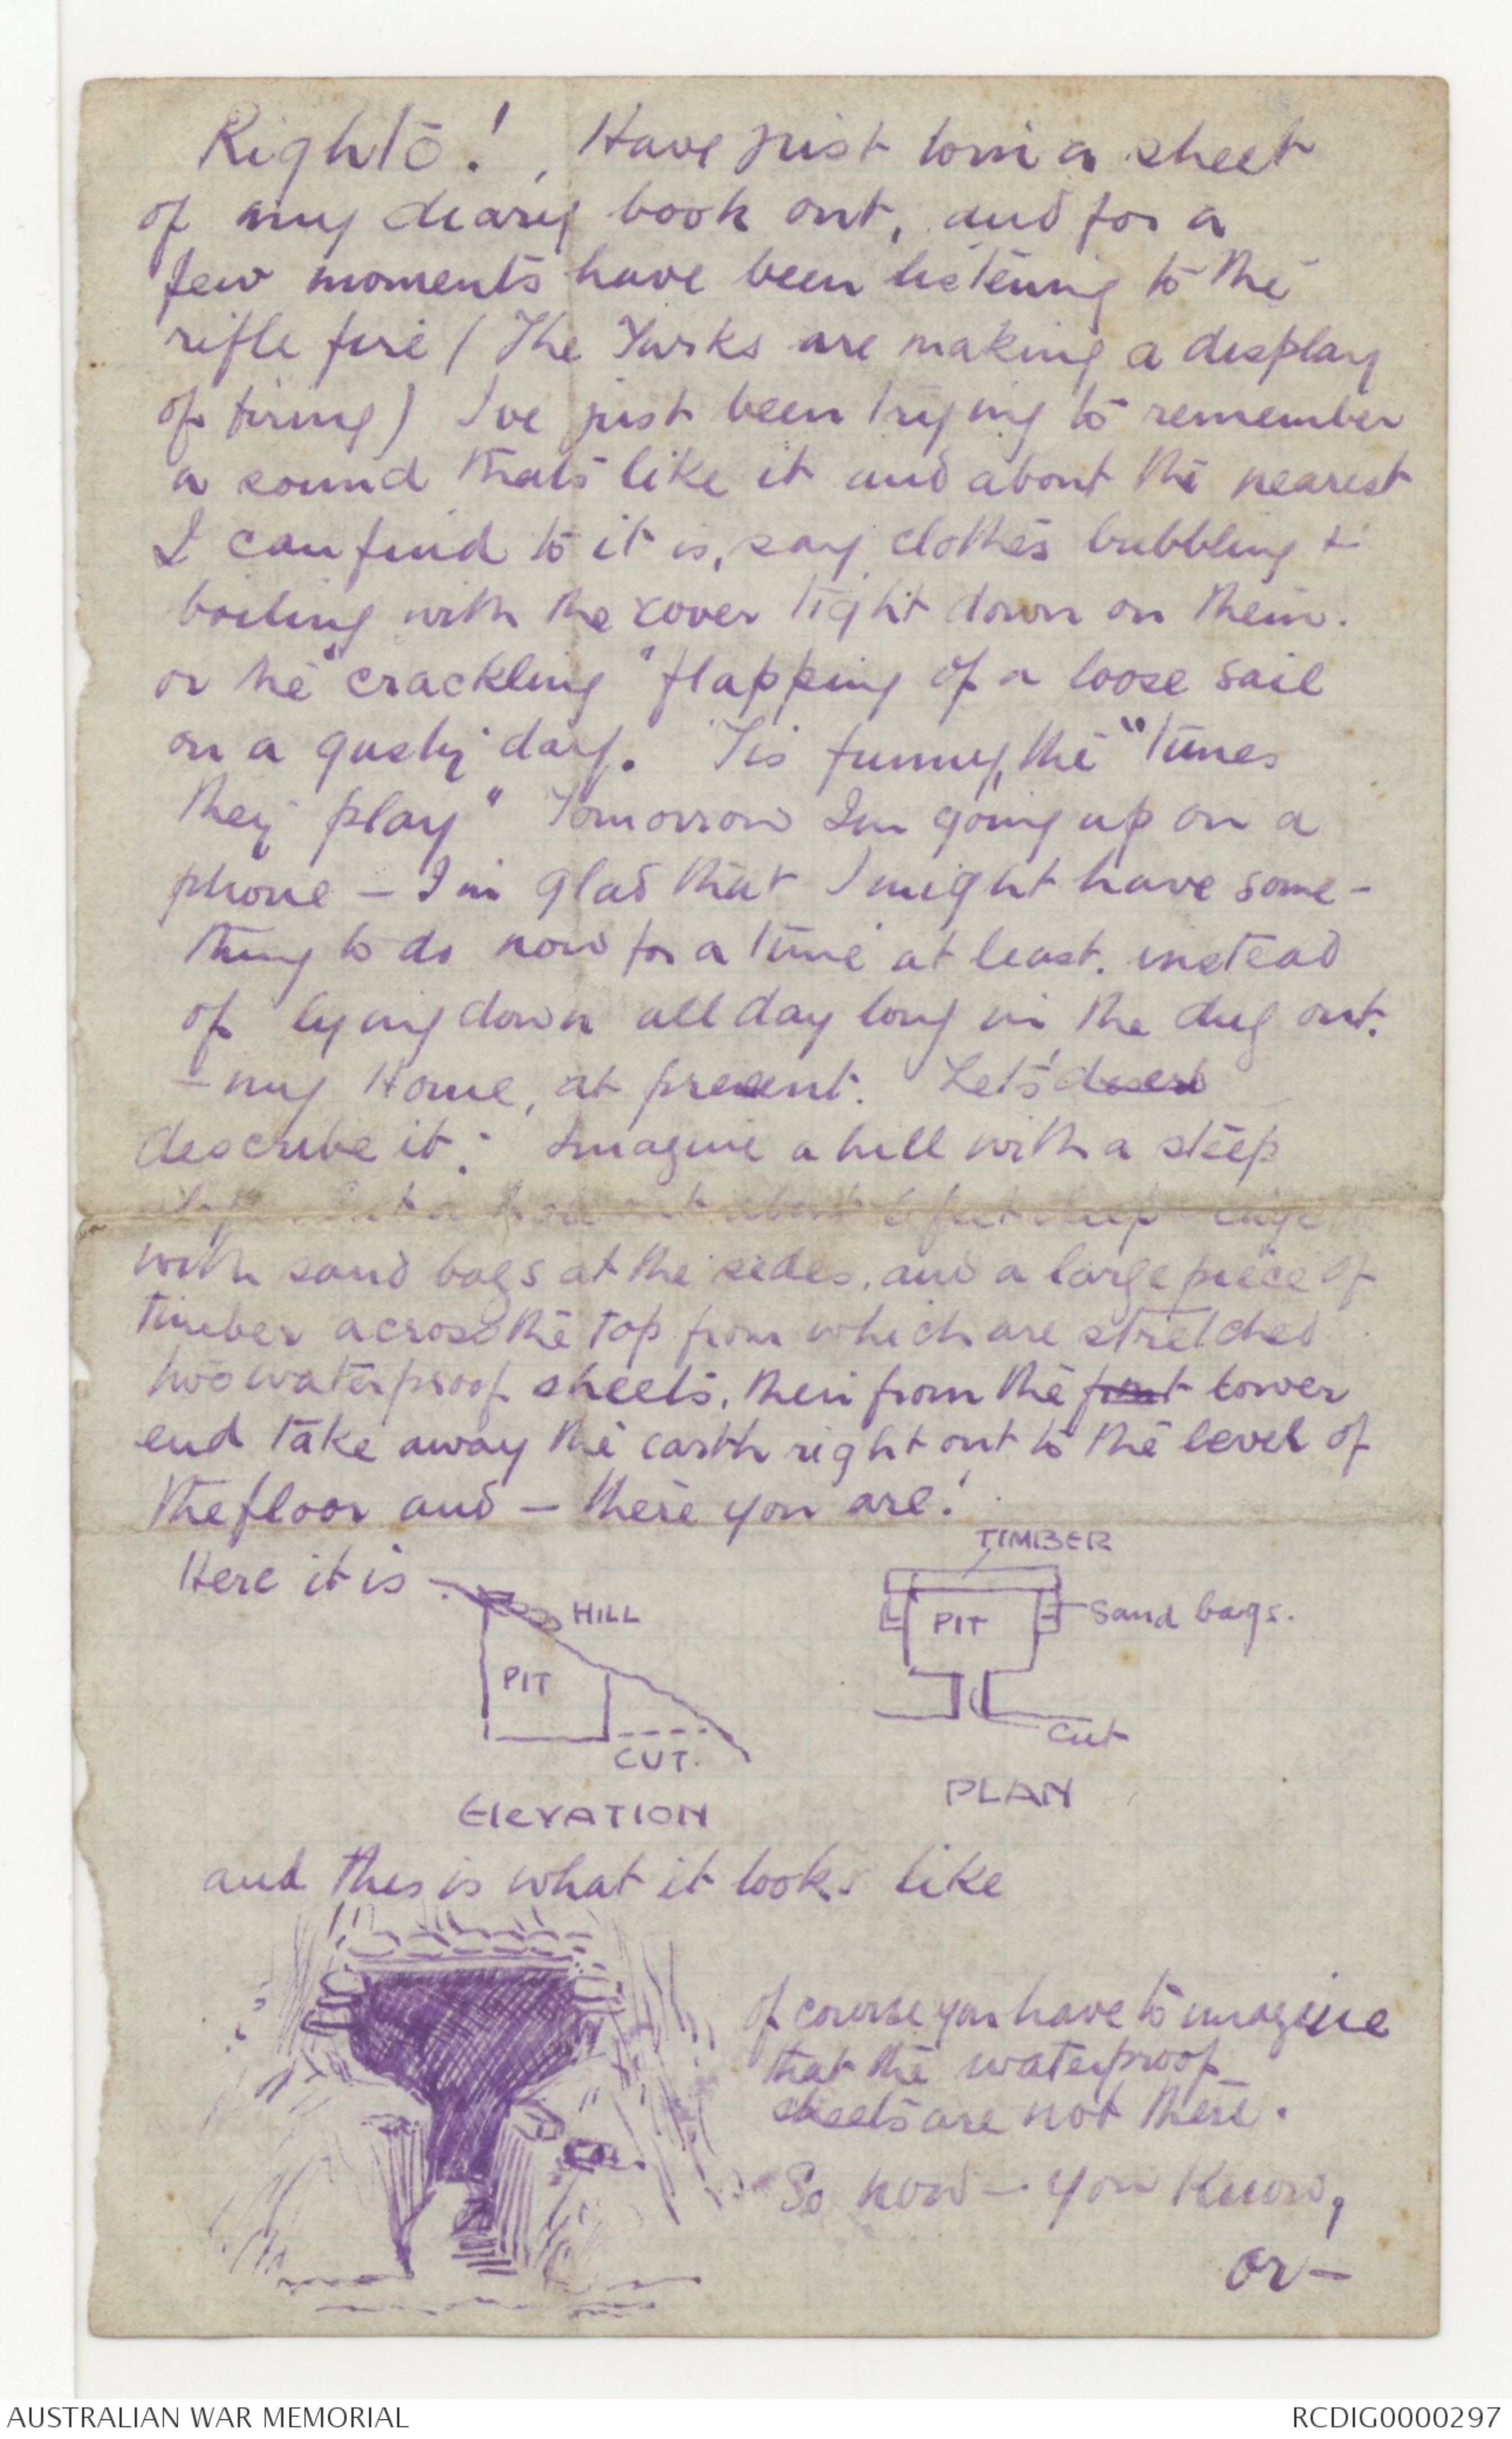 Righto! , Have just torn a sheet
of my diary book out, and for a
few moments have been listening to the
rifle fire (The Turks are making a display
of firing) I've just been trying to remember
a sound thats like it and about the nearest
I can find to it is, say, clothes bubbling &
boiling with the cover tight down on them.
or the "crackling" flapping of a loose sail
on a gusty day. 'Tis funny, the "tunes
they play" Tomorrow Im going up on a
phone – I'm glad that I might have some-
thing to do now for a time at least. instead
of lying down all day long in the dug out.
– my Home, at present. Let's
describe it: Imagine a hill with a steep
about 6 feet deep
with sand bags at the sides, and a large piece of
timber across the top from which are stretched
two waterproof sheets, then from the front lower
end take away the earth right out to the level of
the floor and – there you are!
Here it is –
TIMBER
HILL
PIT
Sand bags.
PIT
CUT.
Cut
ELEVATION
PLAN
and this is what it looks like
of course you have to imagine
that the waterproof
sheets are not there.
So now – you know,
or –
AUSTRALIAN WAR MEMORIAL
RCDIG0000297